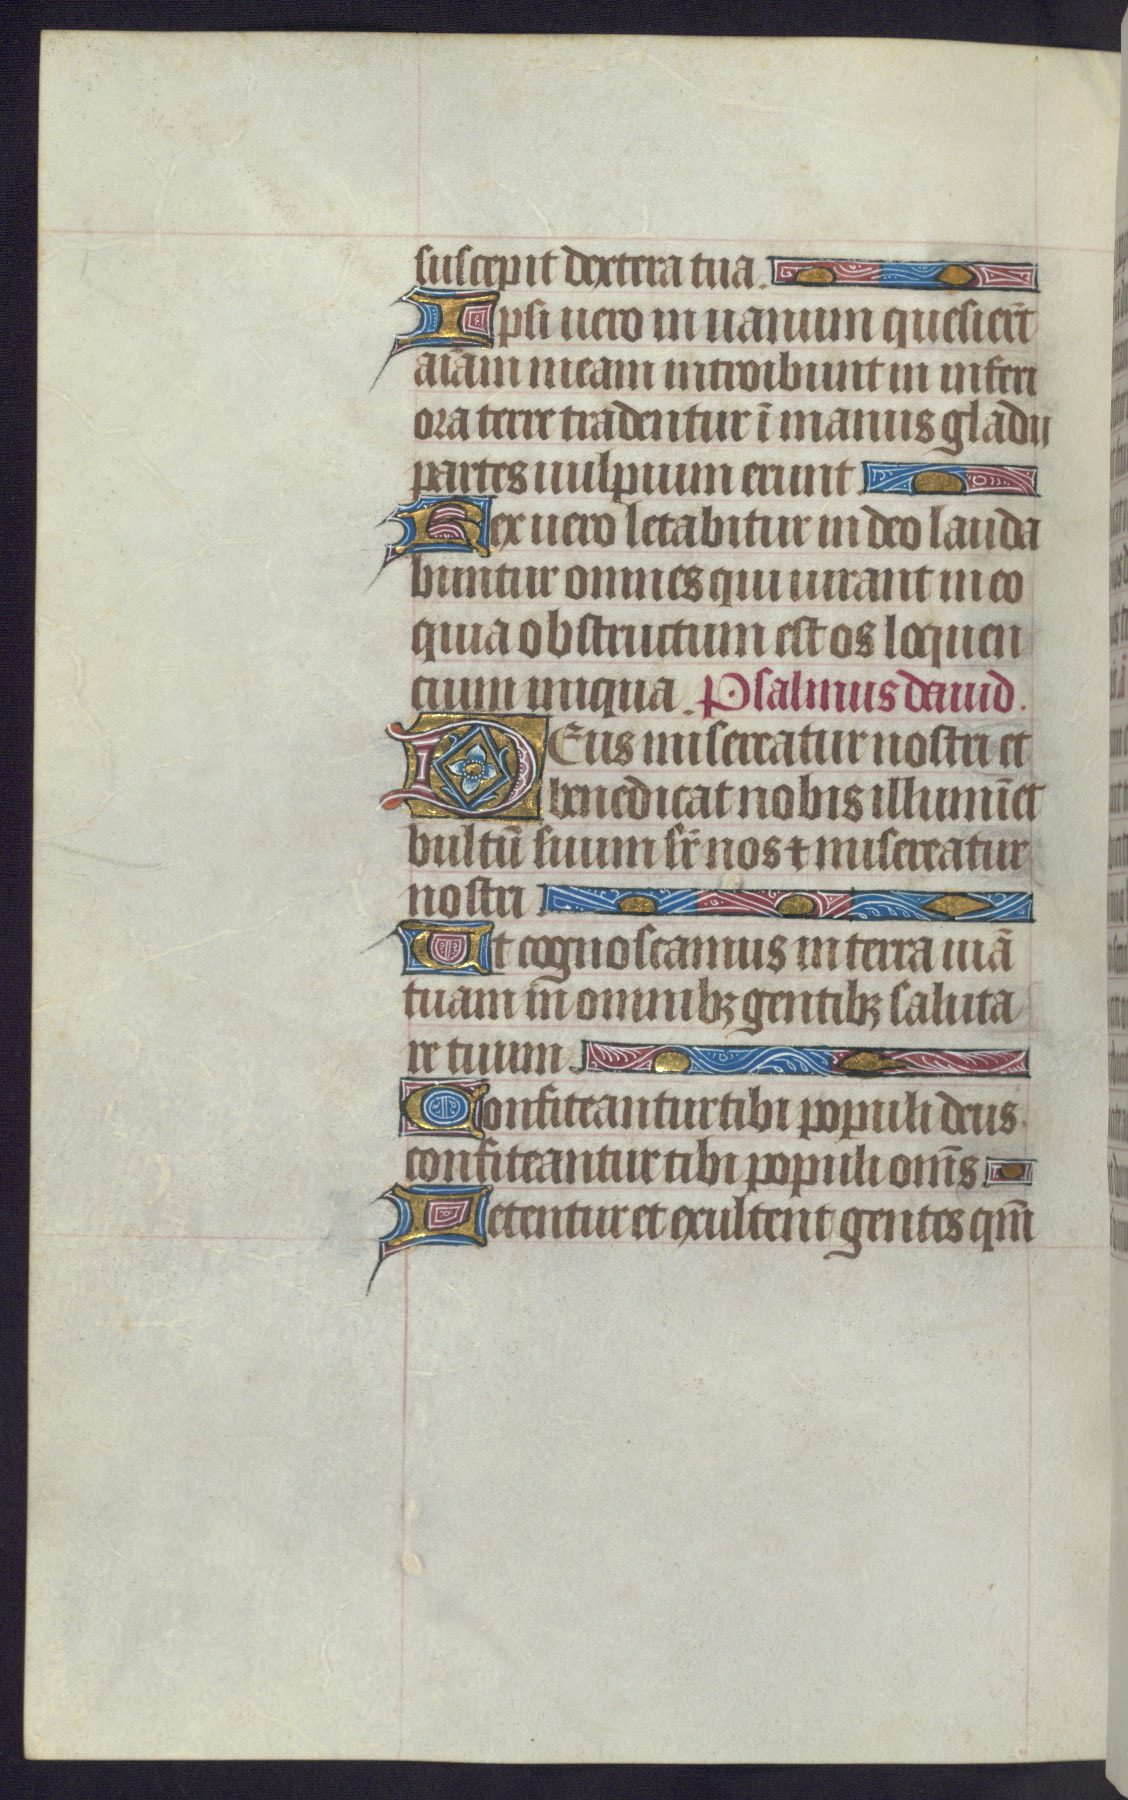 suscepit dextera tua.
Ipsi uero in uanum quesier̄t
aīam meam introibunt in inferi
ora terre tradentur ī manus gladij
partes uulpium erunt.
Rex uero letabitur in deo lauda
buntur omnes qui iurant in eo
quia obstructum est os loquen
cium iniqua. Psalmus dauid.
DEus misereatur nostri et
benedicat nobis illumīet
vultū suum sr̄ nos ⁊ misereatur
nostri.
Ut cognoscamus in terra uiā
tuam in omnibꝫ gentibꝫ saluta
re tuum.
Confiteantur tibi populi deus.
confiteantur tibi populi om̄s.
Letentur et exultent gentes qm̄